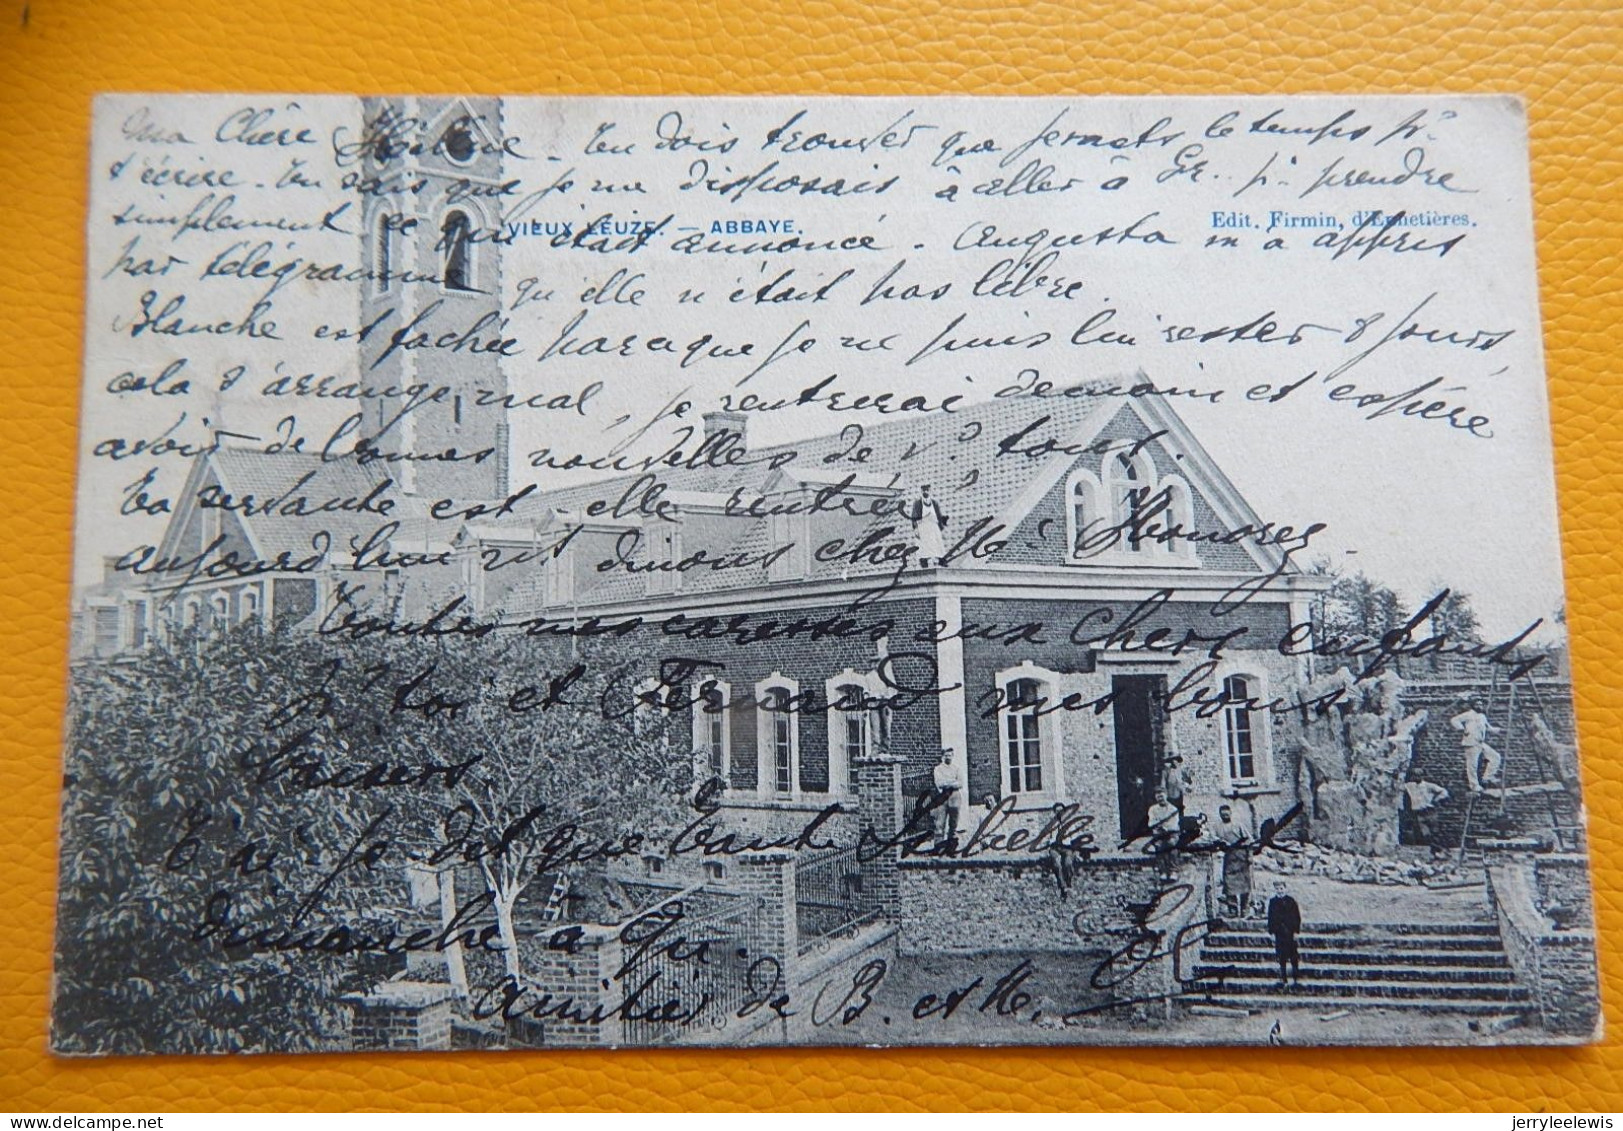 Ma Chère Hélène. Tu dois trouver que je mets le temps pr
t'écrire. Tu sais que je me disposais à aller à Gr.. pr prendre
simplement ce qui était annoncé. Augusta m'a appris
VIEUX LEUZE. — ABBAYE.
Edit. Firmin, d'Ermetières.
par télégramme qu'elle n'était pas libre.
Blanche est fachée parceque je ne puis lui rester 8 jours,
cela s'arrange mal, je rentrerai demain et espère
avoir de bonnes nouvelles de vs tous.
Ta servante est-elle rentrée?
aujourd'hui nous dinons chez Me Honorez
Toutes mes caresses aux chers enfants
pr toi et Fernand mes bons
baisers
T'ai-je dit que Tante Isabelle vient
dimanche à Qu.
Amitiés de B. et M.
jerryleelewis